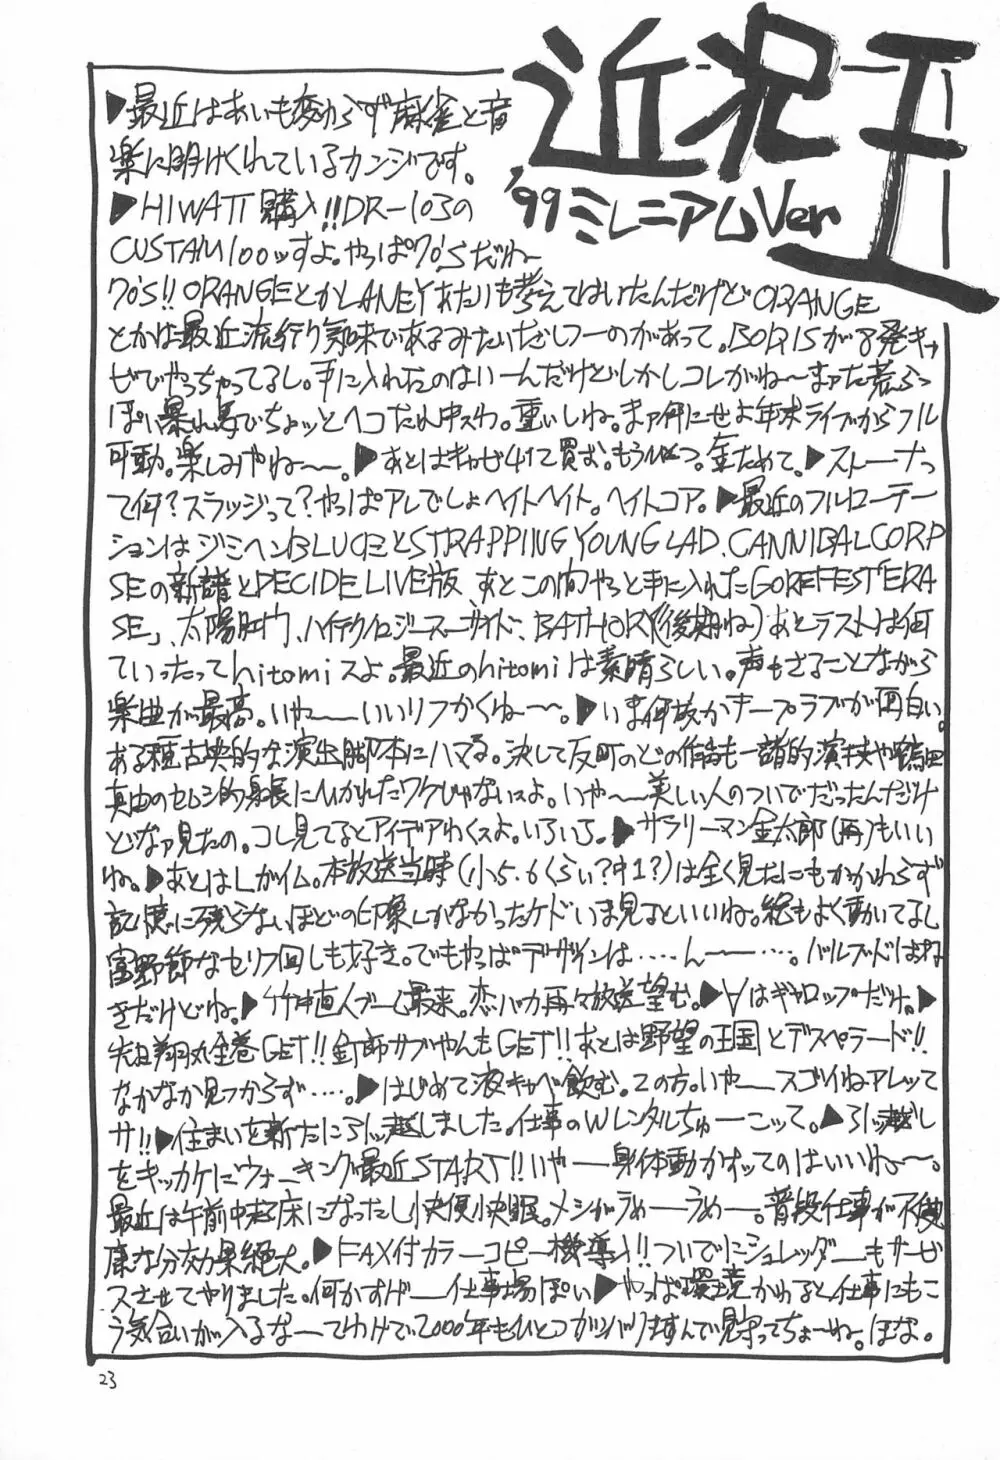 近況王
'99ミレニアムVer
▶最近はあいも変わらず麻雀と音
楽に明けくれているカンジです。
▶HIWATT購入!!DR-103の
CUSTAM100ッすよ。やっぱ70'Sだね〜
70'S!!ORANGEとかLANEYあたりも考えてはいたんだけどORANGE
とかは最近流行り気味であるみたいだしつーのがあって。BORISが8発キャ
ビでやっちゃってるし。手に入れたのはいーんだけどしかしコレがね〜まァた荒ぶっ
ぽい暴れ馬でちょッとヘコたれ中スわ。重いしね。まァ何にせよ年末ライブからフル
可動。楽しみやね〜〜。▶あとはキャビ4発買む。もういっこ。金ためて。▶ストーナっ
て何?スラッジって?やっぱアレでしょヘイトヘイト。ヘイトコア。▶最近のフルローテー
ションはジミヘンBLUESとSTRAPPING YOUNG LAD、CANNIBAL CORP
SEの新譜とDECIDE LIVE版、あとこの間やっと手に入れたGOREFEST「ERA
SE」、太陽肛門、ハイテクノロジースーサイド、BATHORY(後期ね)あとラストは何
ていったってhitomiスよ。最近のhitomiは素晴らしい。声もさることながら
楽曲が最高。いや〜〜いいリフかくね〜〜。▶いま何故かチープラブが面白い。
ある種古典的な演出脚本にハマる。決して反町のどの作品も一緒的演技や鶴田
真由のセムシ的身長にひかれたワケじゃないスよ。いや〜〜美しい人のついでだったんだけ
どなァ見たの。コレ見てるとアイデアわくスよ。いろいろ。▶サラリーマン金太郎(再)もいい
ね。▶あとはLガイム。本放送当時(小5.6くらい?中1?)は全く見たにもかかわらず
記憶に残らないほどの印象しかなかったケドいま見るといいね。絵もよく動いてるし
富野節なセリフ回しも好き。でもやっぱデザインは……ん〜〜……。バルブドはすね
きだけどね。▶竹中直人ブーム最来。恋バカ再々放送望む。▶∀はギャロップだけ。▶
先生翔丸全巻GET!!釘師サブやんもGET!!あとは野望の王国とデスペラード!!
なかなか見つからず……。▶はじめて液キャベ飲む。この方。いやースゴイねアレッて
サ!!▶住まいを新たに引ッ越しました。仕事のWレンタルちゅーこッて。▶引ッ越し
をキッカケにウォーキング最近START!!いやー身体動かすッてのはいいね〜〜。
最近は午前中起床になったし快便快眠。メシがうめーうめー。普段仕事が不健
康な分効果絶大。▶FAX付カラーコピー機導入!!ついでにシュレッダーもサービ
スさせてやりました。何かすげー仕事場ぽい▶やっぱ環境かわると仕事にもこ
う気合いが入るなーてわけで2000年もひとつガンバりますんで見守ってちょーね。ほな。
23